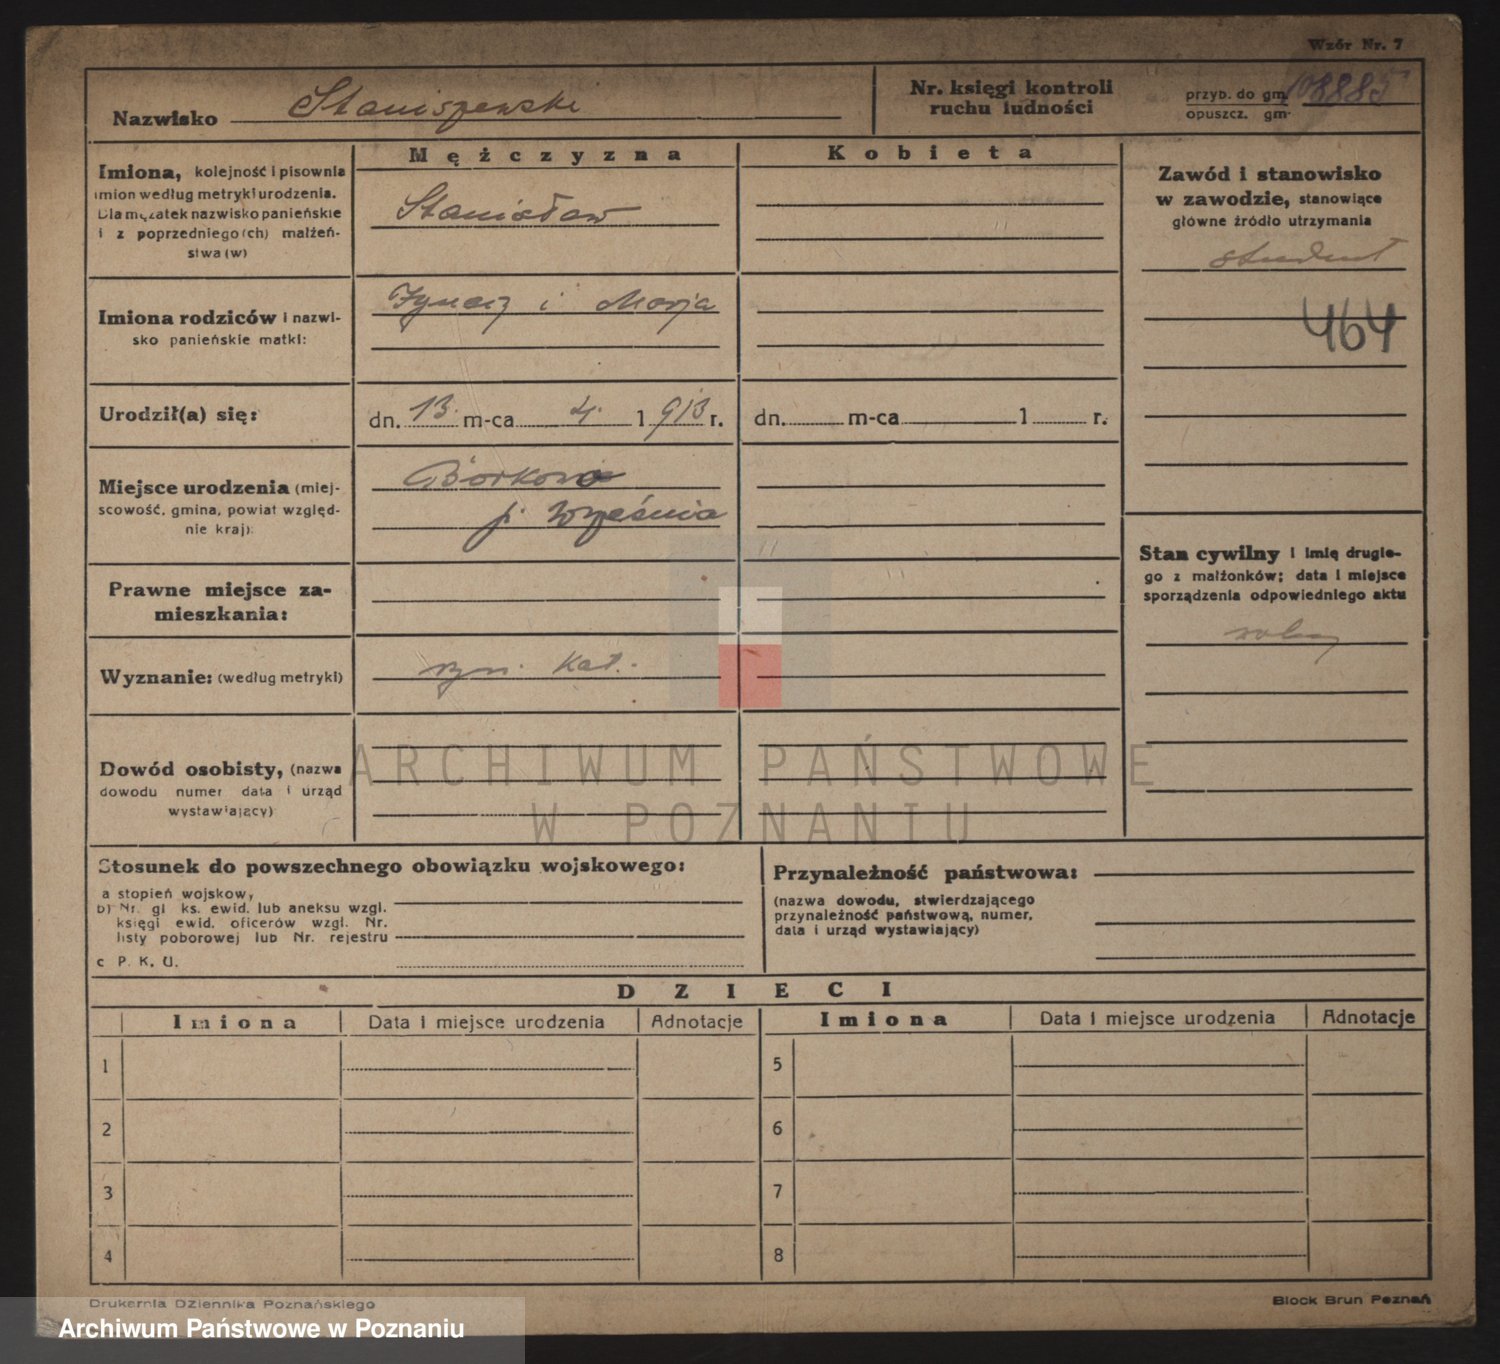 Wzór Nr. 7
Nazwisko Staniszewski
Nr. księgi kontroli
ruchu ludności
przyb. do gm. 108885
opuszcz. gm.
Imiona, kolejność i pisownia
imion według metryki urodzenia.
Dla mężatek nazwisko panieńskie
i z poprzedniego(ch) małżeń-
stwa(w)
Mężczyzna
Kobieta
Stanisław
Zawód i stanowisko
w zawodzie, stanowiące
główne źródło utrzymania
student
464
Imiona rodziców i nazwi-
sko panieńskie matki:
Ignacy i Marja
Urodził(a) się:
dn. 13. m-ca 4. 1913 r.
dn. m-ca 1 r.
Miejsce urodzenia (miej-
scowość, gmina, powiat względ-
nie kraj):
Borkowo
p. Września
Stan cywilny i imię drugie-
go z małżonków; data i miejsce
sporządzenia odpowiedniego aktu
wolny
Prawne miejsce za-
mieszkania:
Wyznanie: (według metryki)
rzym. kat.
Dowód osobisty, (nazwa
dowodu numer data i urząd
wystawiający)
ARCHIWUM PAŃSTWOWE
W POZNANIU
Stosunek do powszechnego obowiązku wojskowego:
a stopień wojskowy
b) Nr. gł ks. ewid. lub aneksu wzgl.
księgi ewid. oficerów wzgl. Nr.
listy poborowej lub Nr. rejestru
c P. K. U.
Przynależność państwowa:
(nazwa dowodu, stwierdzającego
przynależność państwową, numer,
data i urząd wystawiający)
DZIECI
Imiona Data i miejsce urodzenia Adnotacje Imiona Data i miejsce urodzenia Adnotacje
1 5
2 6
3 7
4 8
Drukarnia Dziennika Poznańskiego
Block Brun Poznań
Archiwum Państwowe w Poznaniu